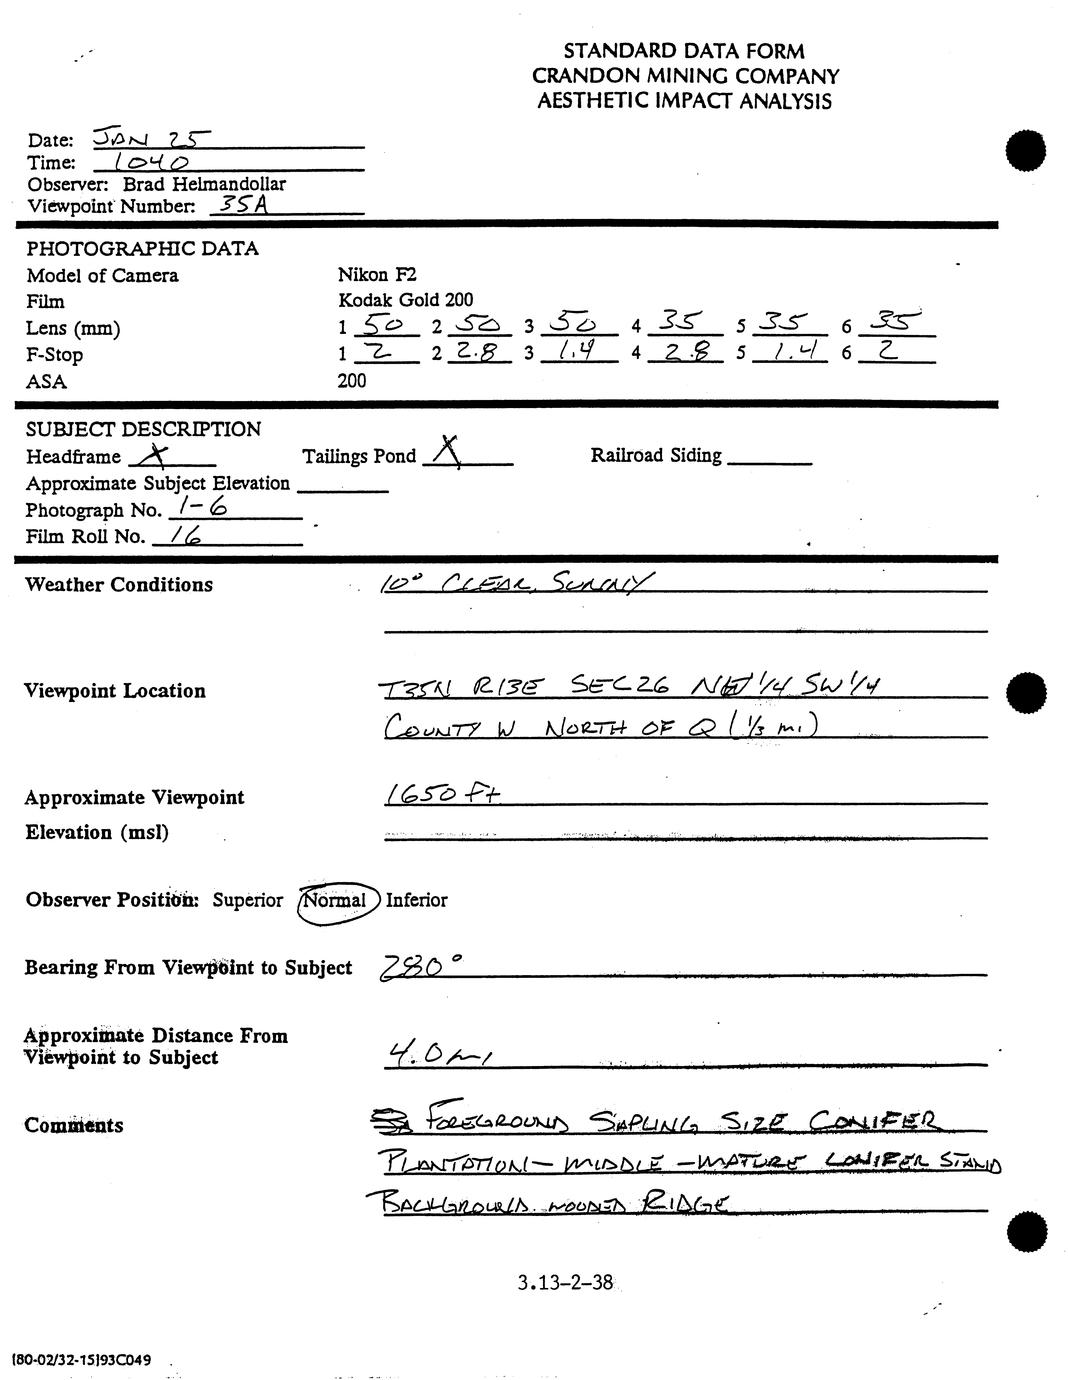 STANDARD DATA FORM
CRANDON MINING COMPANY
AESTHETIC IMPACT ANALYSIS
Date: JAN 25
Time: 1040
Observer: Brad Helmandollar
Viewpoint Number: 35A
PHOTOGRAPHIC DATA
Model of Camera Nikon F2
Film Kodak Gold 200
Lens (mm) 1 50 2 50 3 50 4 35 5 35 6 35
F-Stop 1 2 2 2.8 3 1.4 4 2.8 5 1.4 6 2
ASA 200
SUBJECT DESCRIPTION
Headframe X Tailings Pond X Railroad Siding
Approximate Subject Elevation
Photograph No. 1-6
Film Roll No. 16
Weather Conditions 10° CLEAR, SUNNY
Viewpoint Location T35N R13E SEC26 1/4 SW 1/4
COUNTY W NORTH OF Q (1/3 mi)
Approximate Viewpoint 1650 Ft
Elevation (msl)
Observer Position: Superior Normal Inferior
Bearing From Viewpoint to Subject 280°
Approximate Distance From
Viewpoint to Subject 4.0 mi
Comments FOREGROUND SAPLING SIZE CONIFER
PLANTATION - MIDDLE - MATURE CONIFER STAND
BACKGROUND. WOODED RIDGE
3.13-2-38
[80-02/32-15]93C049